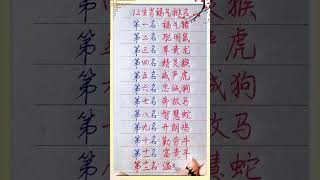 12生肖福气排名
第一名 福气猪
第二名 聪明鼠
第三名 尊贵龙
第四名 精灵猴
第五名 威严虎
第六名 忠诚狗
第七名 奔放马
第八名 智慧蛇
第九名 开朗鸡
第十名 勤劳牛
第十一名 富贵
第十二名 温